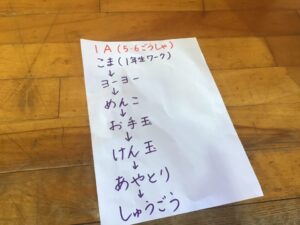 1A(5-6ごうしゃ)
こま(1年生ワーク)
↓
ヨーヨー
↓
めんこ
↓
お手玉
↓
けん玉
↓
あやとり
↓
しゅうごう